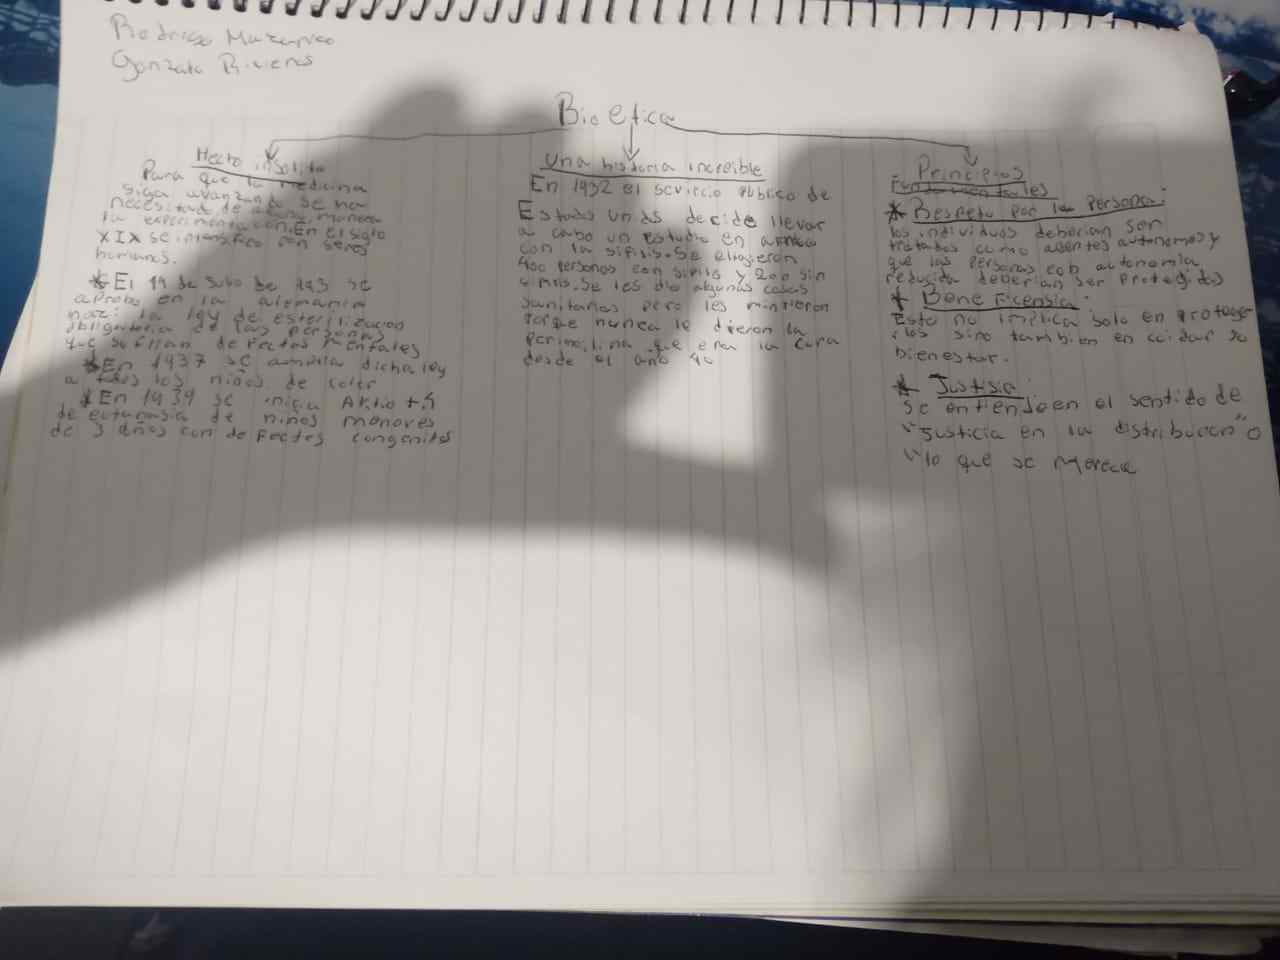 Rodrigo
Gonzalo Riveros
Bioetica
Hecho insolito
Para que la medicina
siga avanzando se ha
necesitado de alguna manera
la experimentacion. En el siglo
XIX se intensifico con seres
humanos.
* El 14 de Julio de se
aprobo en la alemania
nazi la ley de esterilizacion
obligatoria de las personas
que sufrian defectos mentales
* En 1937 se amplia dicha ley
a todos los niños de color
* En 1939 se inicia Aktion t4
de eutanasia de niños menores
de 3 años con defectos congenitos
una historia increible
En 1932 el servicio publico de
Estados unidos decide llevar
a cabo un estudio en
con la sifisis. Se eligieron
400 personas con sifilis y 200 sin
sifilis. Se les dio algunas cosas
sanitarias pero les mintieron
porque nunca le dieron la
que era la cura
desde el año 40
Principios
Fundamentales
* Respeto por la persona:
los individuos deberian ser
tratados como agentes autonomos y
que las personas con autonomia
reducida deberian ser protegidos
* Beneficensia:
Esto no implica solo en proteger
los sino tambien en cuidar su
bienestar.
* Justisia:
Se entiende en el sentido de
"Justicia en la distribucion" o
"lo que se merece